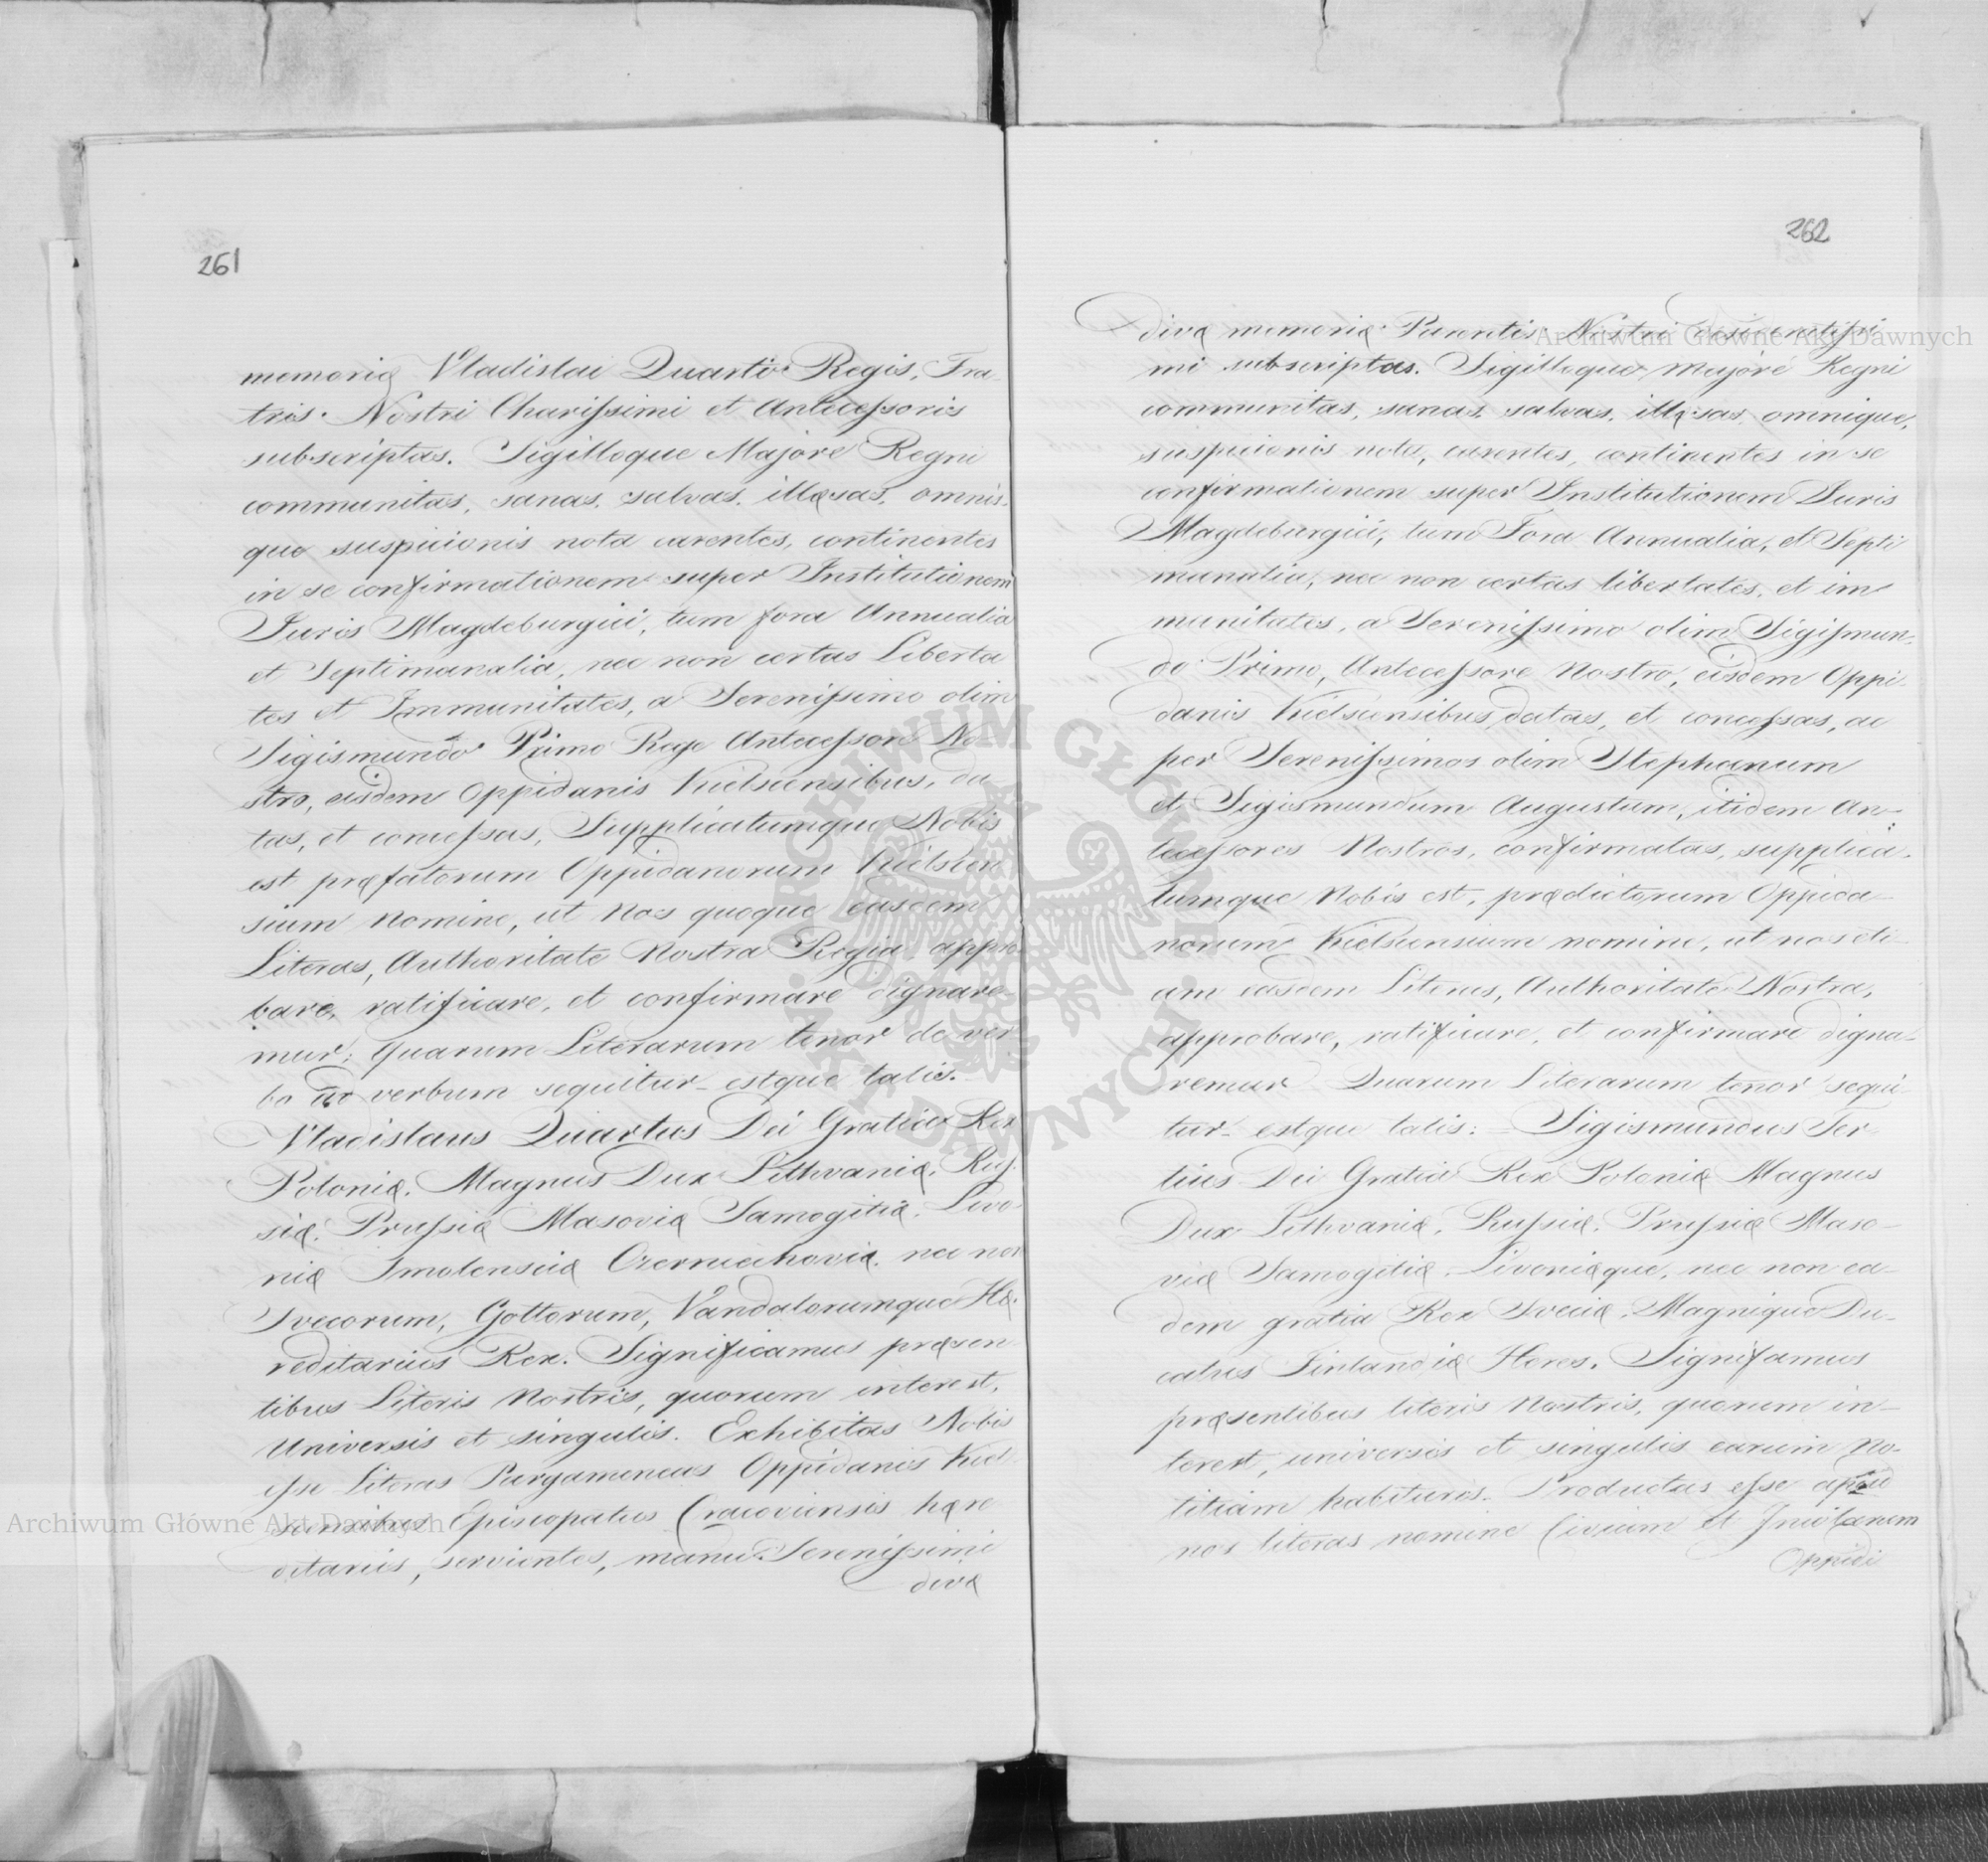 261
memoriæ Vladislai Quarti Regis, Fra-
tris Nostri Charissimi et Antecessoris
subscriptas. Sigilloque Majore Regni
communitas, sanas, salvas, illæsas, omnis-
que suspicionis nota carentes, continentes
in se confirmationem super Institutionem
Juris Magdeburgici, tum fora Annualia
et Septimanalia, nec non certas Liberta
tes et Immunitates, a Serenissimo olim
Sigismundo Primo Rege Antecessore No-
stro, eisdem Oppidanis Kielscensibus, da-
tas, et concessas, Supplicatumque Nobis
est præfatorum Oppidanorum Kielscen
sium nomine, ut Nos quoque easdem
Literas, Authoritate Nostra Regia appro-
bare, ratificare, et confirmare dignare-
mur; Quarum Literarum tenor de ver-
bo ad verbum sequitur estque talis.
Vladislaus Quartus Dei Gratia Rex
Poloniæ, Magnus Dux Lithvaniæ, Rus-
siæ, Prussiæ Masoviæ Samogitiæ, Livo-
niæ Smolensciæ Czerniechoviæ, nec non
Svecorum, Gottorum, Vandalorumque Hæ-
reditarius Rex. Significamus præsen-
tibus Literis Nostris, quorum interest,
Universis et singulis. Exhibitas Nobis
esse Literas Pargameneas Oppidanis Kiel-
scensibus Episcopatus Cracoviensis hære
ditariis, servientes, manu Serenissimi
divæ
262
divæ memoriæ Parentis Nostri desideratissi-
mi subscriptas. Sigilloque Majore Regni
communitas, sanas, salvas, illæsas, omnique,
suspicionis nota, carentes, continentes in se
confirmationem super Institutionem Juris
Magdeburgici, tum Fora Annualia, et Septi
manalia, nec non certas libertates, et im
munitates, a Serenissimo olim Sigismun-
do Primo, Antecessore Nostro, eisdem Oppi-
danis Kielscensibus datas, et concessas, ac
per Serenissimos olim Stephanum
et Sigismundum Augustum, itidem An-
tecessores Nostros, confirmatas, supplica-
tumque Nobis est, prædictorum Oppida-
norum Kielscensium nomine, ut nos eti-
am easdem Literas, Authoritate Nostra,
approbare, ratificare, et confirmare digna-
remur Quarum Literarum tenor sequi-
tur estque talis: Sigismundus Ter-
tius Dei Gratia Rex Poloniæ Magnus
Dux Lithvaniæ, Russiæ, Prussiæ Maso-
viæ Samogitiæ, Livoniæque, nec non ea-
dem gratia Rex Sveciæ, Magnique Du-
catus Finlandiæ Heres. Signifamus
præsentibus literis Nostris, quorum in-
terest, universis et singulis earum no-
titiam habituris. Productas esse apud
nos literas nomine Civium et Incolarum
Oppidi
Archiwum Główne Akt Dawnych
Archiwum Główne Akt Dawnych
ARCHIWUM GŁÓWNE
AKT DAWNYCH